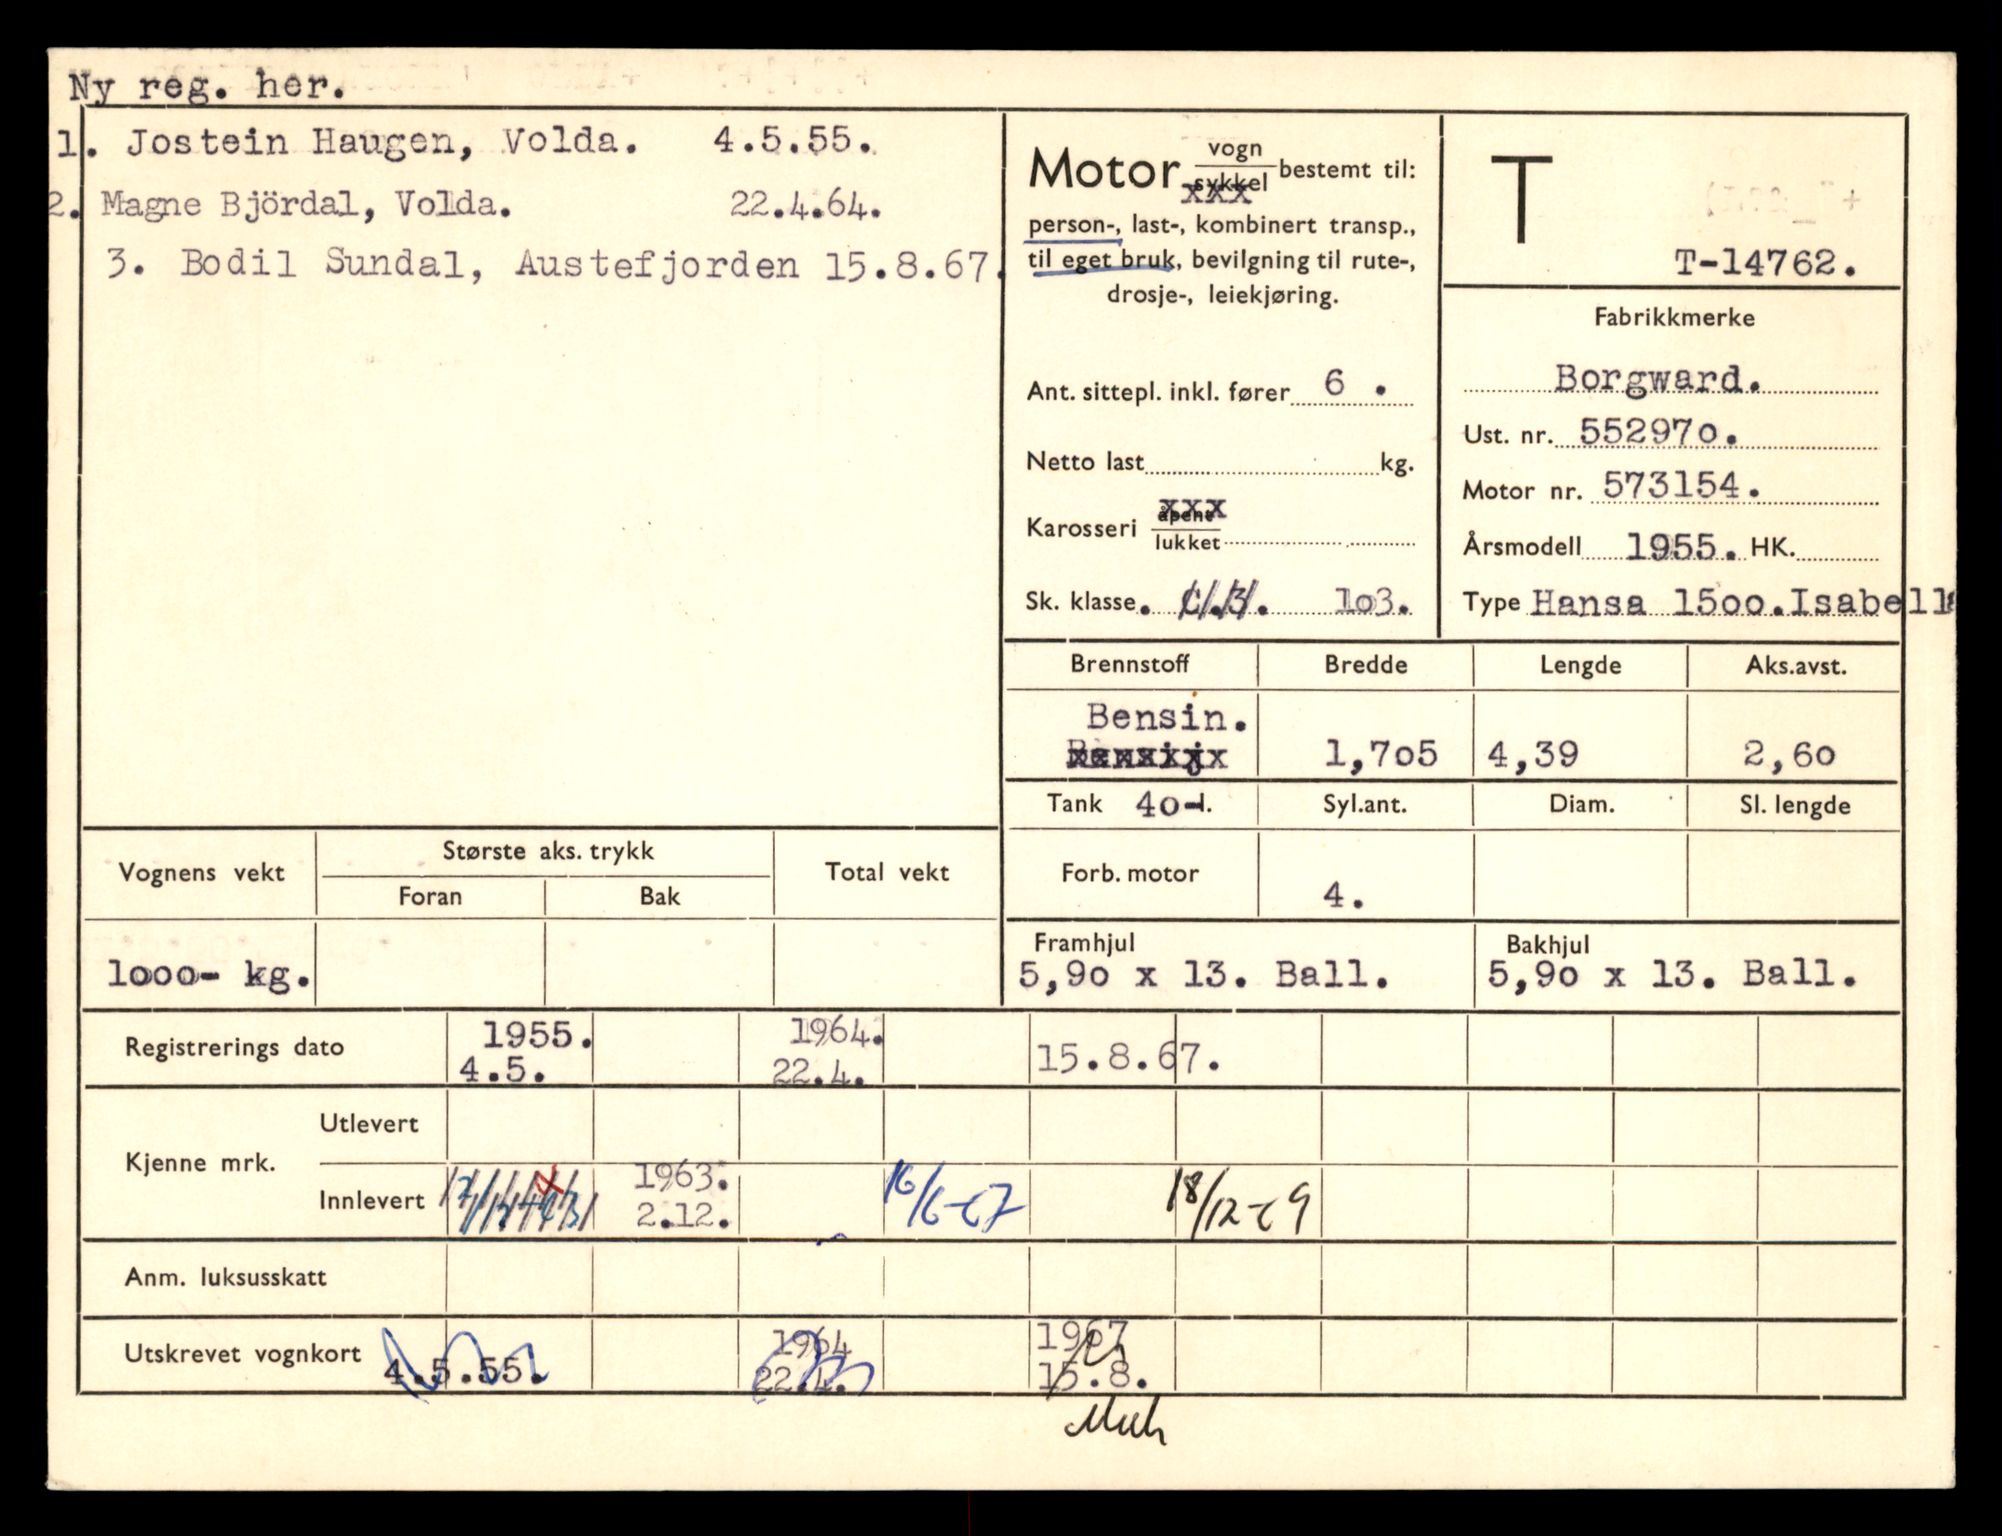 Ny reg. her.
1. Jostein Haugen, Volda. 4.5.55.
2. Magne Björdal, Volda. 22.4.64.
3. Bodil Sundal, Austefjorden 15.8.67.
Motor vogn / sykkel bestemt til:
xxx
person-, last-, kombinert transp.,
til eget bruk, bevilgning til rute-,
drosje-, leiekjøring.
Ant. sittepl. inkl. fører 6 .
Netto last kg.
Karosseri åpent / lukket
xxx
Sk. klasse. C.3. 103.
T
T-14762.
Fabrikkmerke
Borgward.
Ust. nr. 552970.
Motor nr. 573154.
Årsmodell 1955. HK.
Type Hansa 1500.Isabell
Brennstoff Bredde Lengde Aks.avst.
Bensin.
1,705 4,39 2,60
Tank 40-l. Syl.ant. Diam. Sl. lengde
Forb. motor 4.
Framhjul Bakhjul
5,90 x 13. Ball. 5,90 x 13. Ball.
Vognens vekt Største aks. trykk Total vekt
Foran Bak
1000- kg.
Registrerings dato 1955. 1964. 15.8.67.
4.5. 22.4.
Kjenne mrk. Utlevert
Innlevert 1963. 16/6-67 18/12-69
2.12.
Anm. luksusskatt
Utskrevet vognkort 4.5.55. 1964 1967
22.4. 15.8.